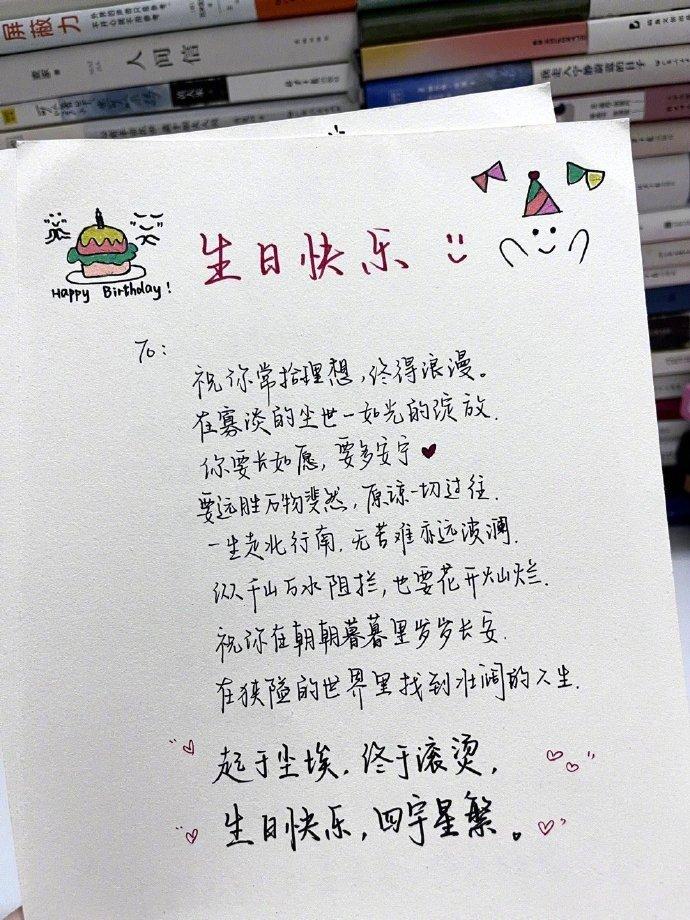 屏蔽力
人间信
生日快乐
Happy Birthday!
To:
祝你常拾理想，终得浪漫。
在寡淡的尘世一如光的绽放.
你要长如愿，要多安宁
要远胜万物斐然，原谅一切过往.
一生走北行南.无苦难亦远波澜.
纵千山万水阻拦，也要花开灿烂.
祝你在朝朝暮暮里岁岁长安.
在狭隘的世界里找到壮阔的人生.
起于尘埃.终于滚烫，
生日快乐，四宇星繁。